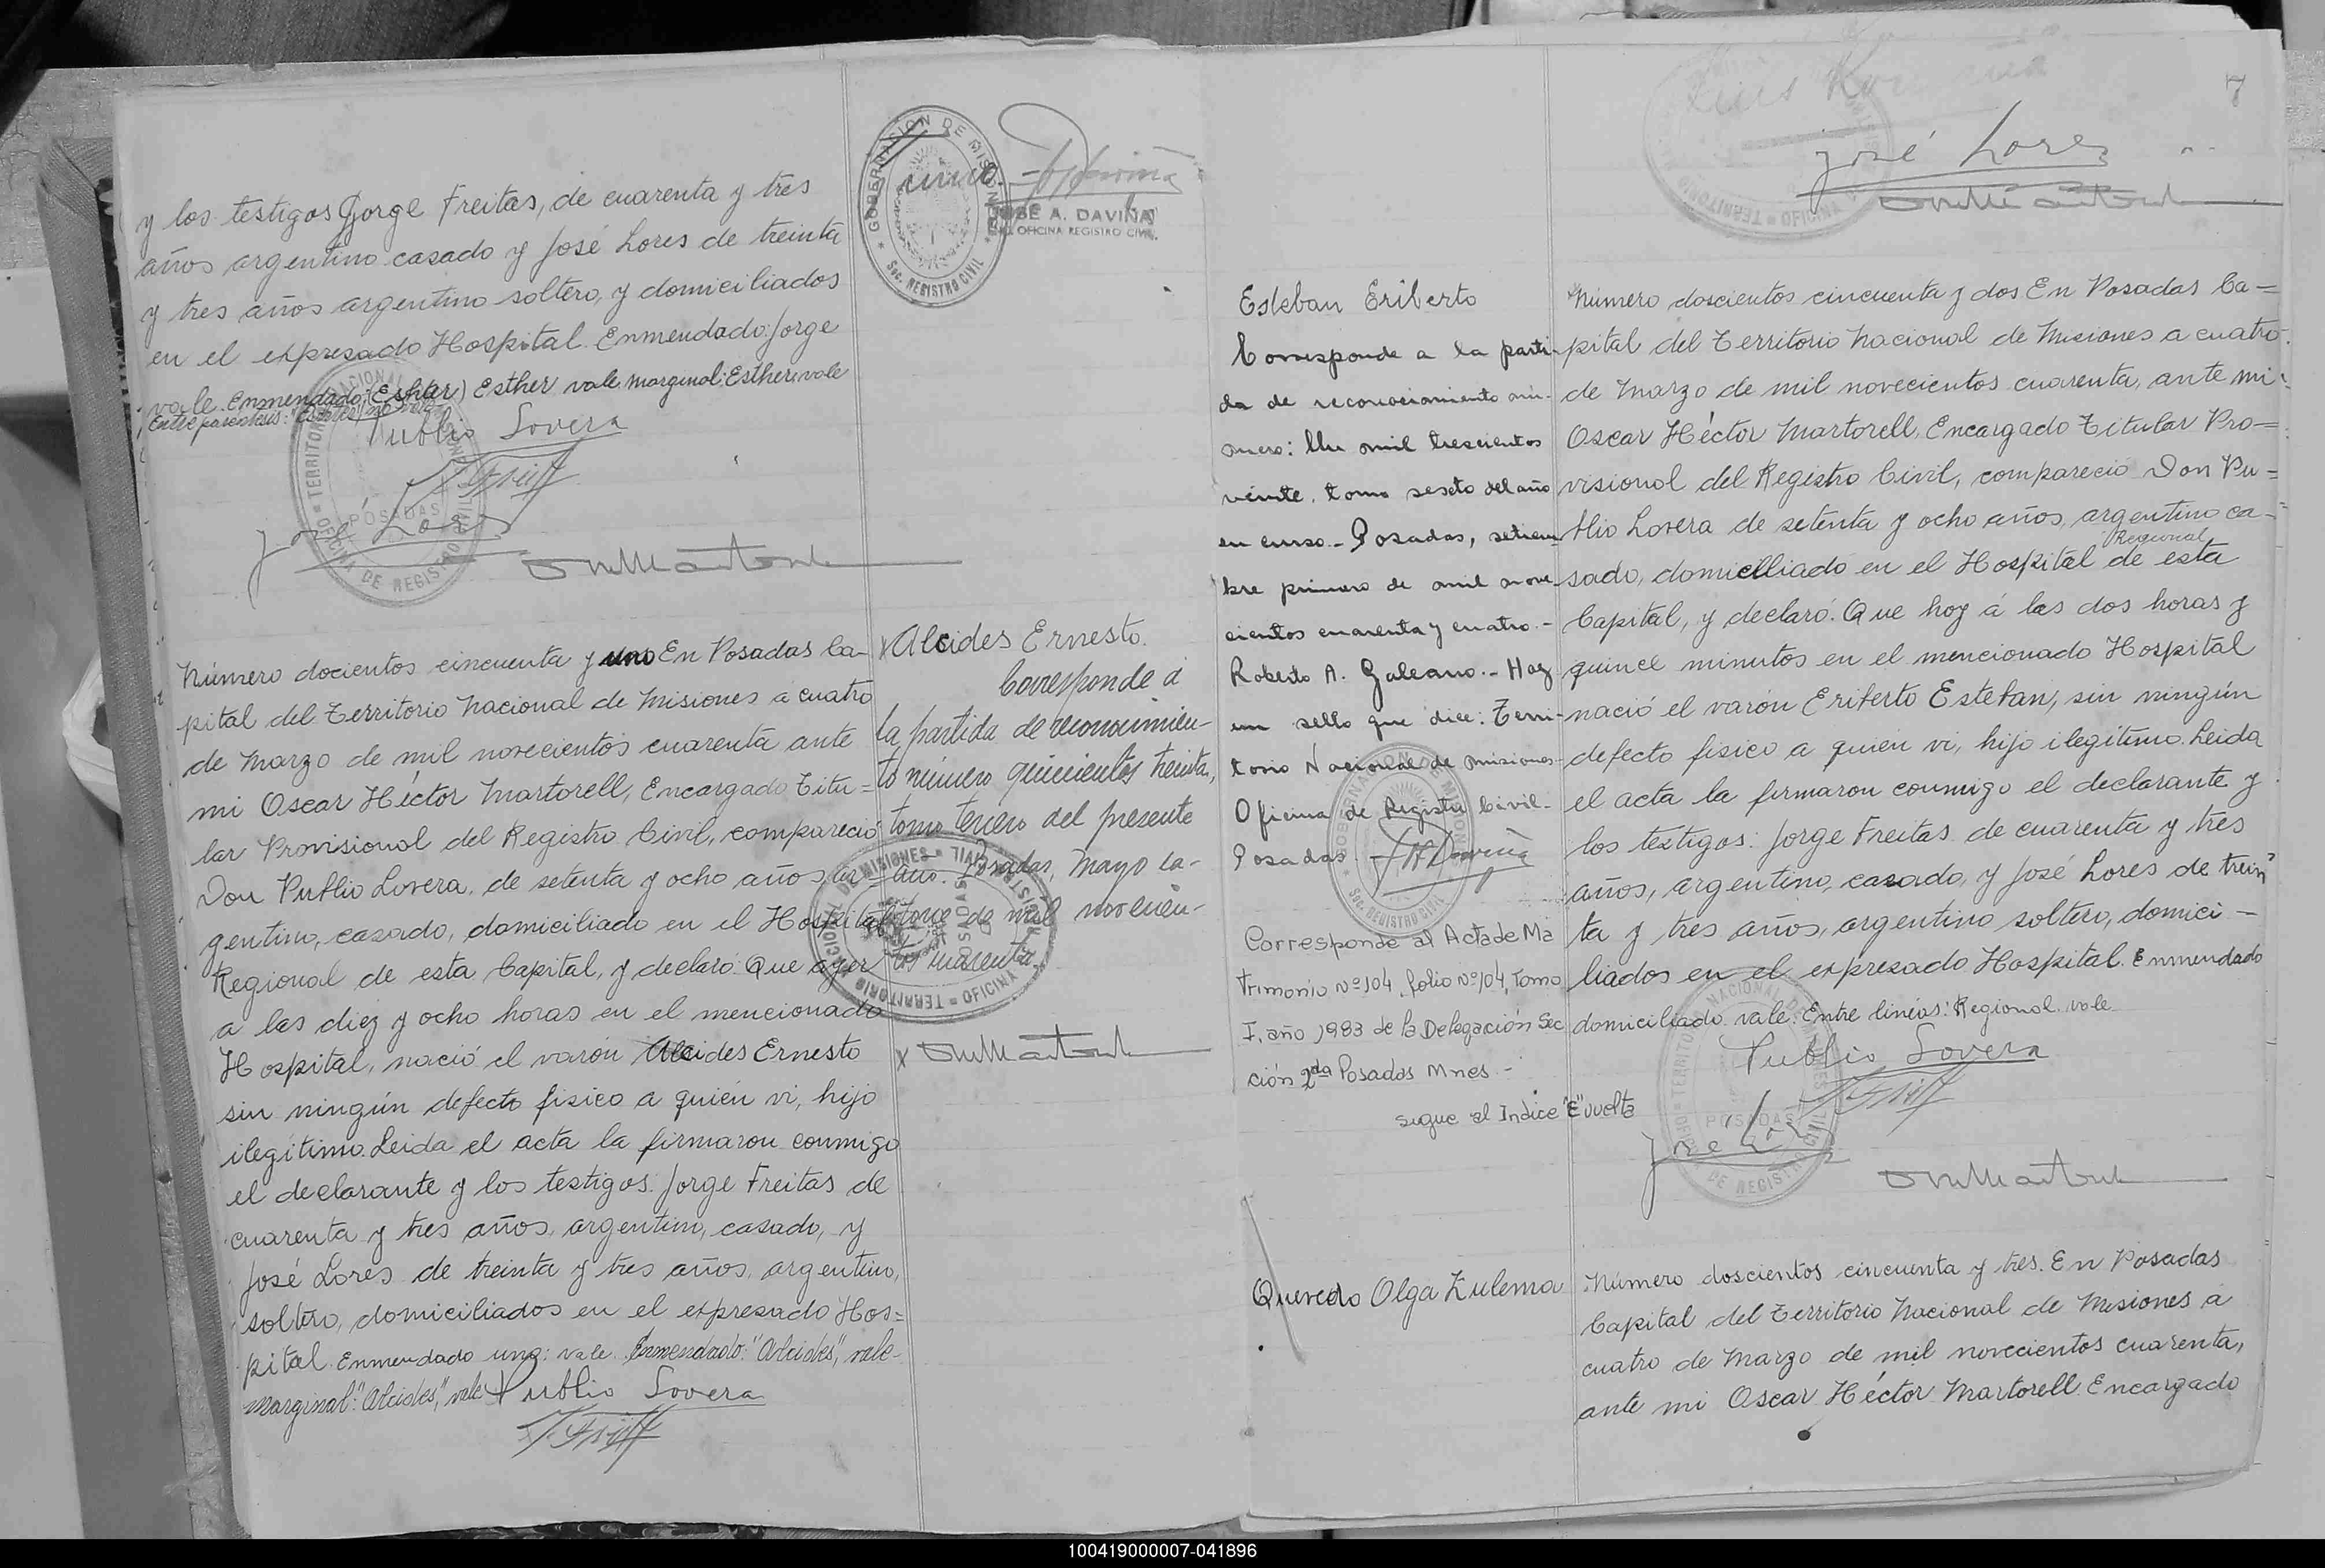 y los testigos Jorge Freitas, de cuarenta y tres
años argentino casado y José Lores de treinta
y tres años argentino soltero, y domiciliados
en el expresado Hospital. Enmendado: Jorge
vale. Enmendado: (Eshter) Esther vale. marginal: Esther, vale
Entre parentesis: "Eshter" no vale
Publio Lovera
José Lores
GOBERNACION DE MISIONES
Sec. REGISTRO CIVIL
JOSÉ A. DAVIÑA
ENC. OFICINA REGISTRO CIVIL
Número docientos cincuenta y uno En Posadas Ca-
pital del Territorio Nacional de Misiones a cuatro
de Marzo de mil novecientos cuarenta ante
mi Oscar Héctor Martorell, Encargado Titu=
lar Provisional del Registro Civil, compareció
Don Publio Lovera, de setenta y ocho años ar=
gentino, casado, domiciliado en el Hospital
Regional de esta Capital, y declaró: Que ayer
a las diez y ocho horas en el mencionado
Hospital, nació el varón Alcides Ernesto
sin ningún defecto fisico a quién vi, hijo
ilegítimo. Leida el acta la firmaron conmigo
el declarante y los testigos: Jorge Freitas de
cuarenta y tres años, argentino, casado, y
José Lores de treinta y tres años, argentino,
soltero, domiciliados en el expresado Hos=
pital. Enmendado uno: vale. Enmendado: "Alcides", vale-
Marginal: "Alcides", vale Publio Lovera
Alcides Ernesto.
Corresponde a
la partida de reconocimien-
to número quinientos treinta,
tomo tercero del presente
año. Posadas, Mayo ca-
torce de mil novecien-
tos cuarenta.
7
José Lores
Esteban Eriberto
Corresponde a la parti-
da de reconocimiento nú-
mero: Un mil trescientos
veinte, tomo sexto del año
en curso.- Posadas, setiem-
bre primero de mil nove-
cientos cuarenta y cuatro.-
Roberto A. Galeano.- Hay
un sello que dice: Terri-
torio Nacional de Misiones-
Oficina de Registro Civil-
Posadas.
Corresponde al Acta de Ma
trimonio Nº 104, folio Nº 104, tomo
I, año 1983 de la Delegación Sec
ción 2da Posadas Mnes.-
sigue al Indice "E" vuelta
Número doscientos cincuenta y dos En Posadas Ca=
pital del Territorio Nacional de Misiones a cuatro
de Marzo de mil novecientos cuarenta, ante mi
Oscar Héctor Martorell, Encargado Titular Pro=
visional del Registro Civil, compareció Don Pu=
blio Lovera de setenta y ocho años, argentino ca-
Regional
sado, domiciliado en el Hospital de esta
Capital, y declaró: Que hoy á las dos horas y
quince minutos en el mencionado Hospital
nació el varón Eriberto Esteban, sin ningún
defecto fisico a quién vi, hijo ilegítimo. Leida
el acta la firmaron conmigo el declarante y
los testigos: Jorge Freitas de cuarenta y tres
años, argentino, casado, y José Lores de trein
ta y tres años, argentino soltero, domici-
liados en el expresado Hospital. Enmendado
domiciliado vale. Entre lineas: Regional. vale
Publio Lovera
José Lores
Quevedo Olga Zulema
Número doscientos cincuenta y tres. En Posadas
Capital del Territorio Nacional de Misiones a
cuatro de Marzo de mil novecientos cuarenta,
ante mi Oscar Héctor Martorell Encargado
100419000007-041896